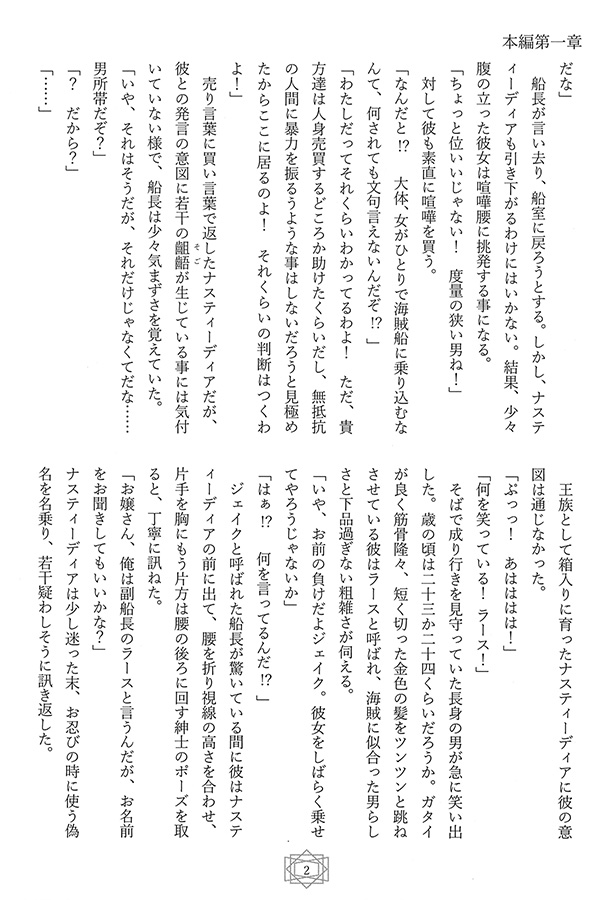 本編第一章
だな」
　船長が言い去り、船室に戻ろうとする。しかし、ナステ
ィーディアも引き下がるわけにはいかない。結果、少々
腹の立った彼女は喧嘩腰に挑発する事になる。
「ちょっと位いいじゃない！　度量の狭い男ね！」
　対して彼も素直に喧嘩を買う。
「なんだと⁉　大体、女がひとりで海賊船に乗り込むな
んて、何されても文句言えないんだぞ⁉」
「わたしだってそれくらいわかってるわよ！　ただ、貴
方達は人身売買するどころか助けたくらいだし、無抵抗
の人間に暴力を振るうような事はしないだろうと見極め
たからここに居るのよ！　それくらいの判断はつくわ
よ！」
　売り言葉に買い言葉で返したナスティーディアだが、
彼との発言の意図に若干の齟齬が生じている事には気付
そご
いていない様で、船長は少々気まずさを覚えていた。
「いや、それはそうだが、それだけじゃなくてだな……
男所帯だぞ？」
「？　だから？」
「……」
　王族として箱入りに育ったナスティーディアに彼の意
図は通じなかった。
「ぷっっ！　あはははは！」
「何を笑っている！ラース！」
　そばで成り行きを見守っていた長身の男が急に笑い出
した。歳の頃は二十三か二十四くらいだろうか。ガタイ
が良く筋骨隆々、短く切った金色の髪をツンツンと跳ね
させている彼はラースと呼ばれ、海賊に似合った男らし
さと下品過ぎない粗雑さが伺える。
「いや、お前の負けだよジェイク。彼女をしばらく乗せ
てやろうじゃないか」
「はぁ⁉　何を言ってるんだ⁉」
　ジェイクと呼ばれた船長が驚いている間に彼はナステ
ィーディアの前に出て、腰を折り視線の高さを合わせ、
片手を胸にもう片方は腰の後ろに回す紳士のポーズを取
ると、丁寧に訊ねた。
「お嬢さん、俺は副船長のラースと言うんだが、お名前
をお聞きしてもいいかな？」
ナスティーディアは少し迷った末、お忍びの時に使う偽
名を名乗り、若干疑わしそうに訊き返した。
2